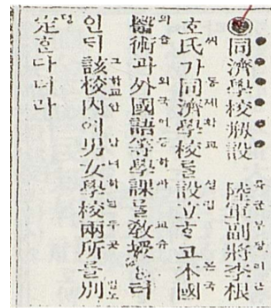 ◉同濟學校刱設 陸軍副將李根
호氏가同濟學校를設立ᄒᆞ고本國
醫術과外國語等學課를敎授ᄒᆞᆯ터
인ᄃᆡ該校內에男女學校兩所를別
定ᄒᆞᆫ다더라